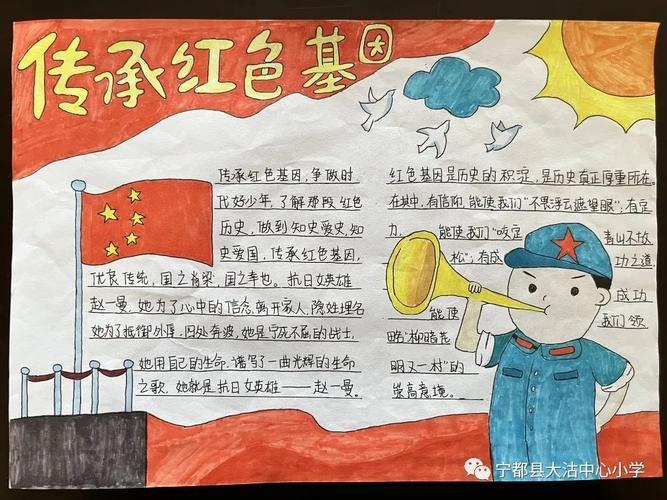 传承红色基因
传承红色基因，争做时
代好少年，了解那段红色
历史，做到知史爱史，知
史爱国，传承红色基因，
优良传统，国之脊梁，国之幸也。抗日女英雄
赵一曼，她为了心中的信念，离开家人，隐姓埋名
她为了抵御外辱，四处奔波，她是宁死不屈的战士，
她用自己的生命，谱写了一曲光辉的生命
之歌，她就是抗日女英雄——赵一曼。
红色基因是历史的积淀，是历史真正厚重所在。
在其中，有信仰，能使我们"不畏浮云遮望眼"；有定
力，能使我们"咬定青山不放
松"；有成功之道，
成功
能使我们领
略"柳暗花
明又一村"的
崇高意境。
宁都县大沽中心小学